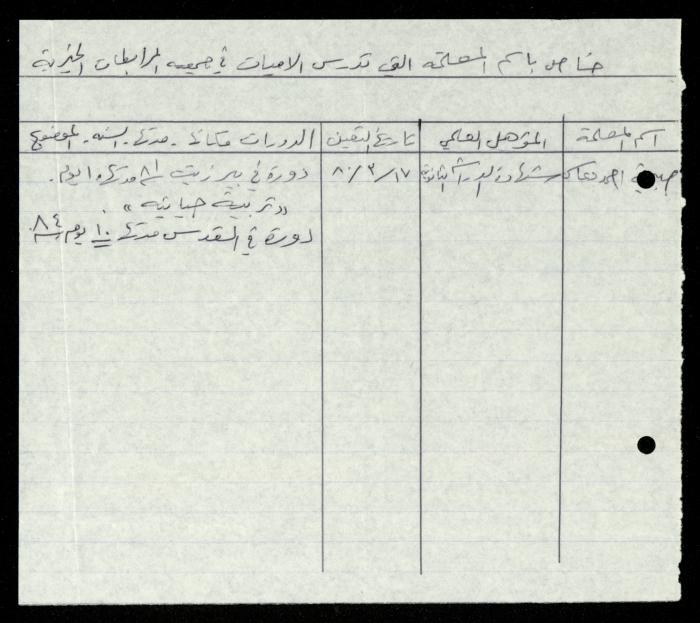 خاص باسم المعلمة التي تدرس الاميات في جمعية المرابطات الخيرية
اسم المعلمة المؤهل العلمي تاريخ التعيين الدورات مكانها - مدتها - السنة - الموضوع
احمد شهادة الدراسة الثانوية ١٧/٣/٨٠ دورة في بير زيت مدتها ١٠ ايام.
"تربية حياتية".
دورة في القدس مدتها ١٠ يوم ٨٤